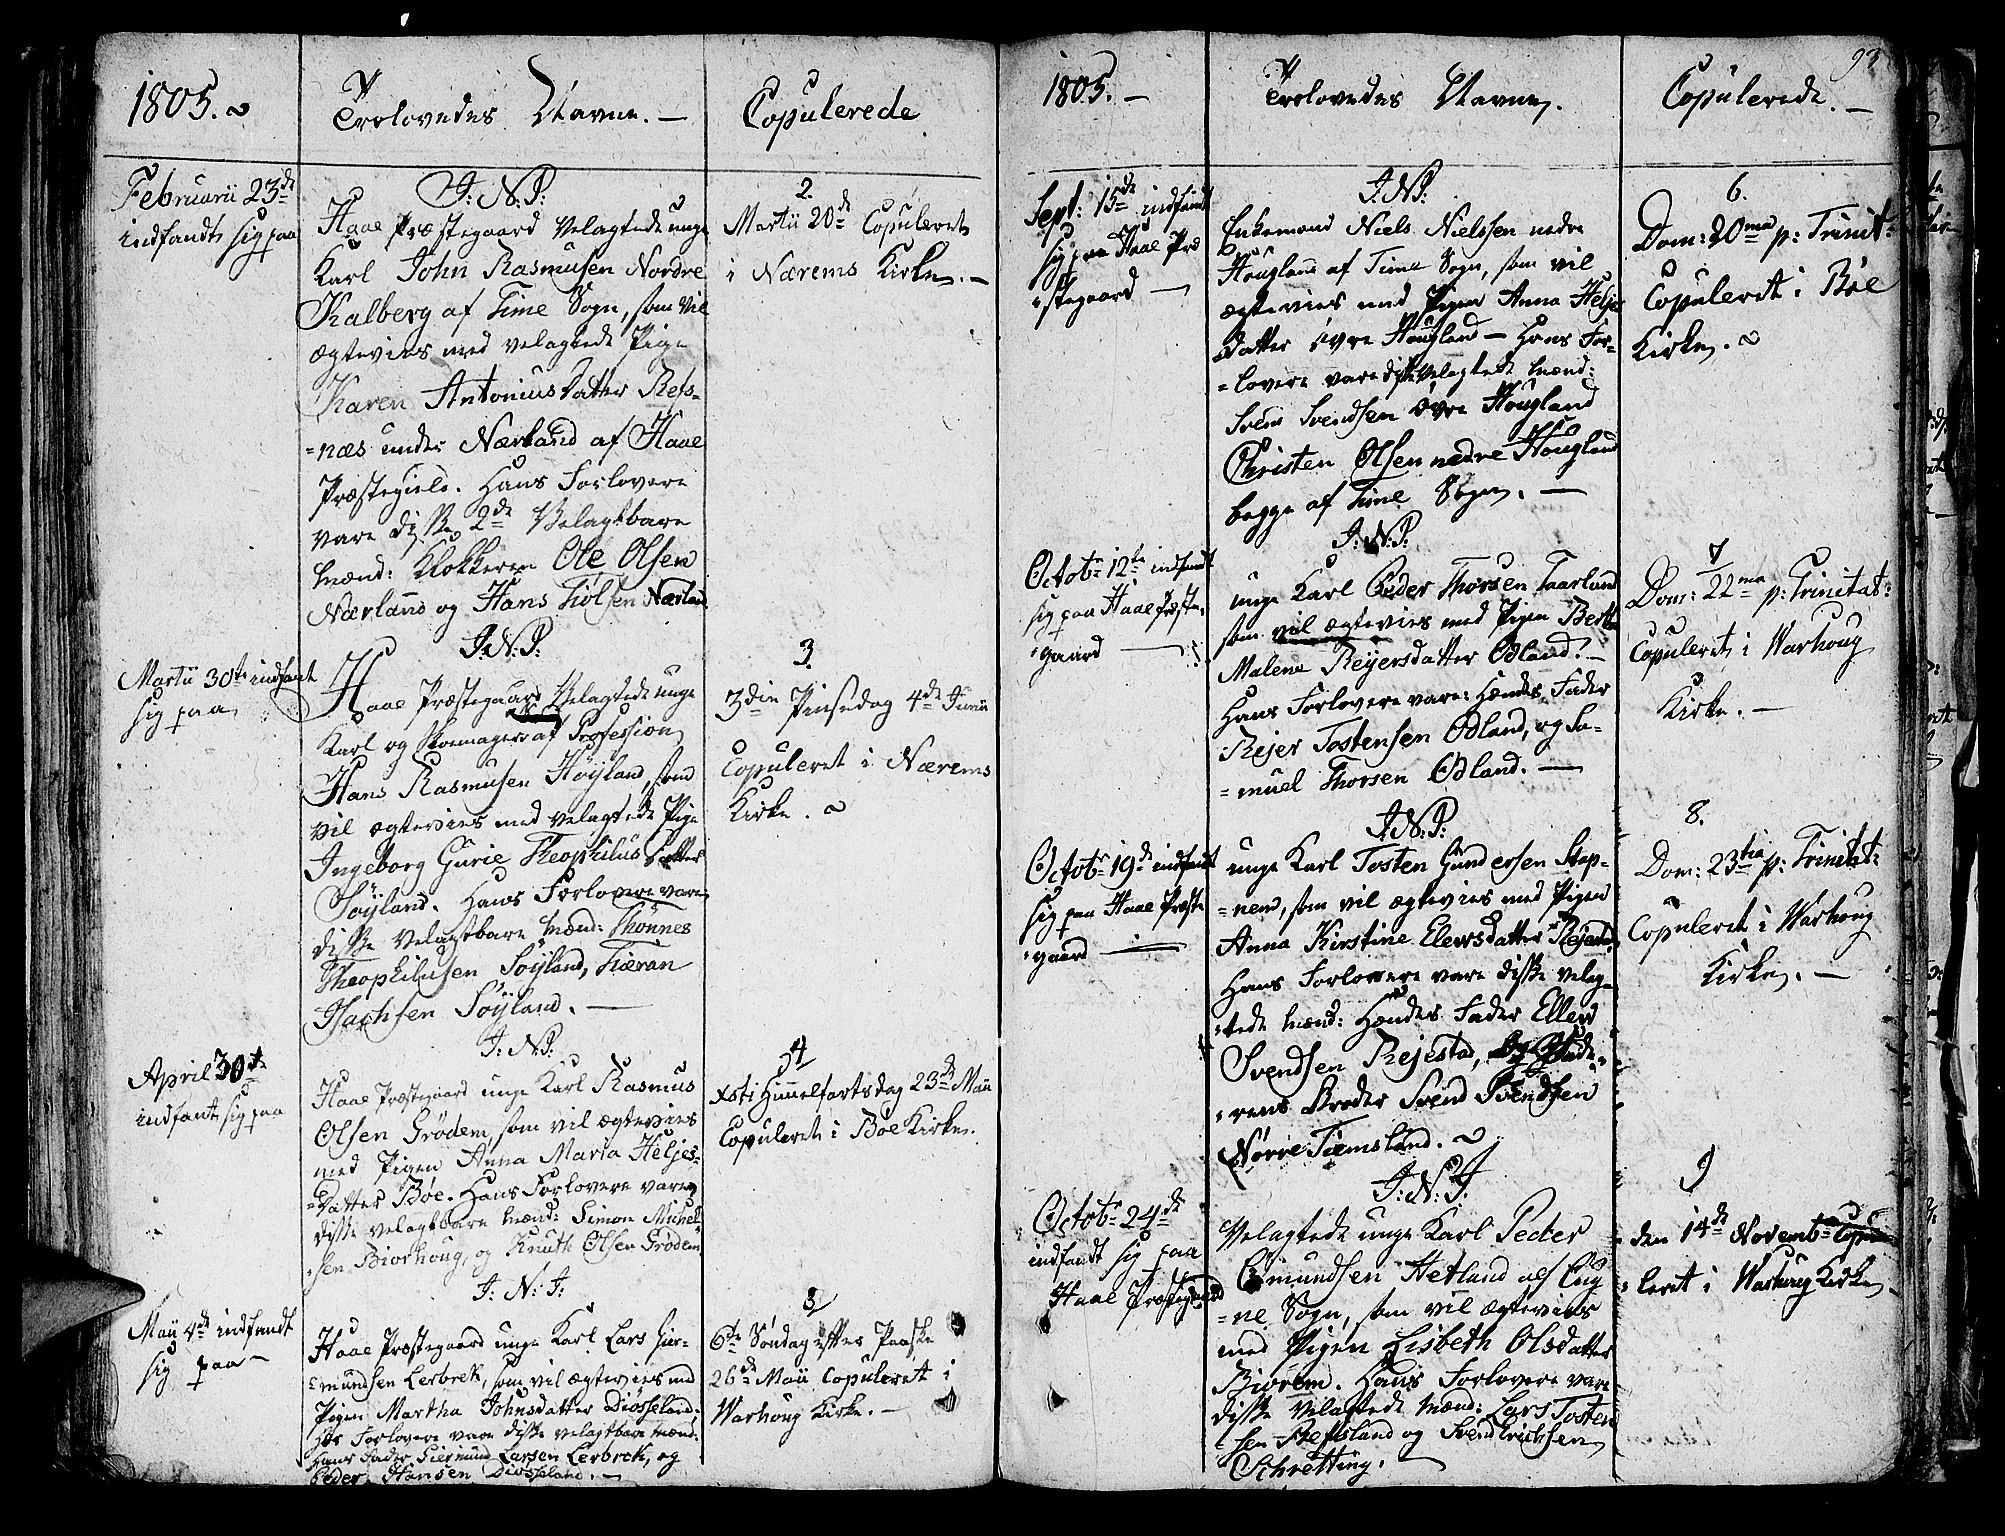 1805. ~
Trolovedes Navne. —
Copulerede
Februarii 23de
indfandt sig paa
J: N: J:
Haae Præstegaard Velagtede unge
Karl John Rasmusen Nordre
Kalberg af Time Sogn, som vil
ægtevies med velagtede Pige
Karen Antonius Datter Refs-
=næs under Nærland af Haae
Præstegield. Hans Forlovere
vare disse 2de Velagtbare
Mænd: Klokkeren Ole Olsen
Nærland og Hans Tiølsen Nærland
2.
Martii 20de Copuleret
i Nærems Kirke. —
Martii 30te indfant
sig paa
J: N: J:
Haae Præstegaard Velagtede unge
Karl og Skomager af Profession
Hans Rasmusen Höyland, som
vil ægtevies med velagtede Pige
Ingeborg Gurie Theophilus Datter
Söyland. Hans Forlovere vare
disse Velagtbare Mænd: Thönnes
Theophilusen Söyland, Tieran
Isachsen Söyland. —
3
3die Pinsedag 4de Junii
Copuleret i Nærems
Kirke. ~
April 30te
indfant sig paa
J: N: J:
Haae Præstegaard unge Karl Rasmus
Olsen Grödem, som vil ægtevies
med Pigen Anna Maria Heljes-
=Datter Böe. Hans Forlovere vare
disse velagtbare Mænd: Simon Michel-
=sen Biorhoug, og Knuth Olsen Grödem
4
Xsti Himmelfartsdag 23de Maii
Copuleret i Böe Kirke.
Maii 4de indfandt
sig paa —
J: N: J:
Haae Præstegaard unge Karl Lars Gier-
=mundsen Lerbrek, som vil ægtevies med
Pigen Martha Johnsdatter Diösseland.
Hans Forlovere vare disse velagtbare Mænd:
Hans Fader Giermund Larsen Lerbrek, og
Peder Hansen Diösseland. —
6te Söndag efter Paaske
26de Maii Copuleret i
Warhoug Kirke. —
93
1805. —
Trolovedes Navne.
Copulerede. —
Sept: 15de indfandt
sig paa Haae Præ
=stegaard —
J: N: J:
Enkemand Niels Nielssen nedre
Hougland af Time Sogn, som vil
ægtevies med Pigen Anna Helje
Datter övre Hougland — Hans For-
=lovere vare disse Velagtede Mænd:
Svend Svendsen övre Hougland
Christen Olsen nedre Hougland
begge af Time Sogn. —
6.
Dom: 20ma p: Trinit:
Copuleret i Böe
Kirke. ~
Octobr 12te indfandt
sig paa Haae Præste-
=gaard —
J: N: J:
unge Karl Peder Thorsen Taarland
som vil ægtevies med Pigen Berthe
Malena Reyersdatter Ödland. —
Hans Forlovere vare: Hændes Fader
Rejer Tostensen Ödland, og Sa-
=muel Thorsen Ödland. —
7
Dom: 22ma p: Trinitat:
Copuleret i Warhoug
Kirke. —
Octobr 19de indfandt
sig paa Haae Præste
=gaard —
J: N: J:
unge Karl Tosten Gundersen Stop-
=nem, som vil ægtevies med Pigen
Anna Kirstine Elersdatter Rejestad
Hans Forlovere vare disse velag-
=tede Mænd: Hændes Fader Ellert
Svendsen Rejestad, og Fade-
=rens Broder Svend Svendsen
Nörre Tiemsland. ~
8.
Dom: 23tia p: Trinitat:
Copuleret i Warhoug
Kirke. —
Octobr 24de
indfandt sig paa
Haae Præstegaard
J: N: J:
Velagtede unge Karl Peder
Omundsen Hetland af Oug
=ne Sogn, som vil ægtevies
med Pigen Lisbeth Olsdatter
Biörem. Hans Forlovere vare
disse Velagtede Mænd: Lars Tosten
=sen Refsland og Svend Erichsen
Schretting.
9
den 14de Novembr Copu-
=leret i Warhoug Kirke